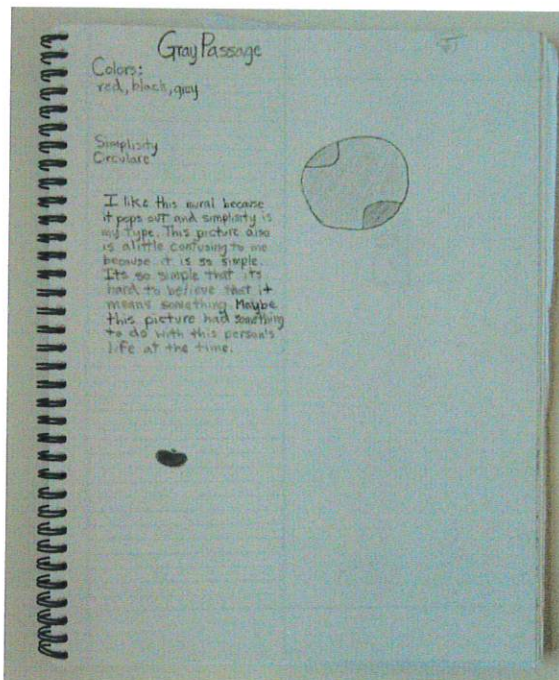 Gray Passage
Colors:
red, black, grey
Simplisity
Circulare
I like this mural because
it pops out and simplisity is
my type. This picture also
is alittle confusing to me
because it is so simple.
Its so simple that its
hard to believe that it
means something. Maybe
this picture had something
to do with this person's
life at the time.